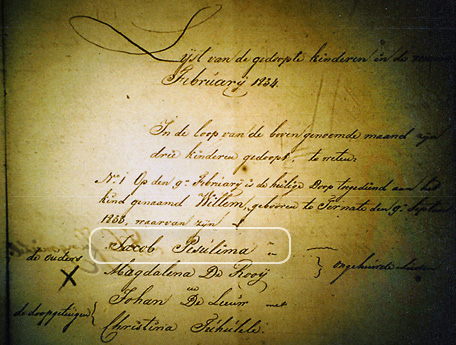 Lijst van de gedoopte kinderen in de maand
Februarij 1834.
In de loop van de boven genoemde maand zijn
drie kinderen gedoopt. te weten.
N:1 Op den 9n February is de heilige Doop toegediend aan het
kind genaamd Willem, gebooren te Ternate den 9n Septemb
1833, waarvan zijn
Jacob Pesulima en
de ouders
Magdalena De Rooij } ongehuwde
Johan De Leeuw met
de doopgetuigen {
Christina